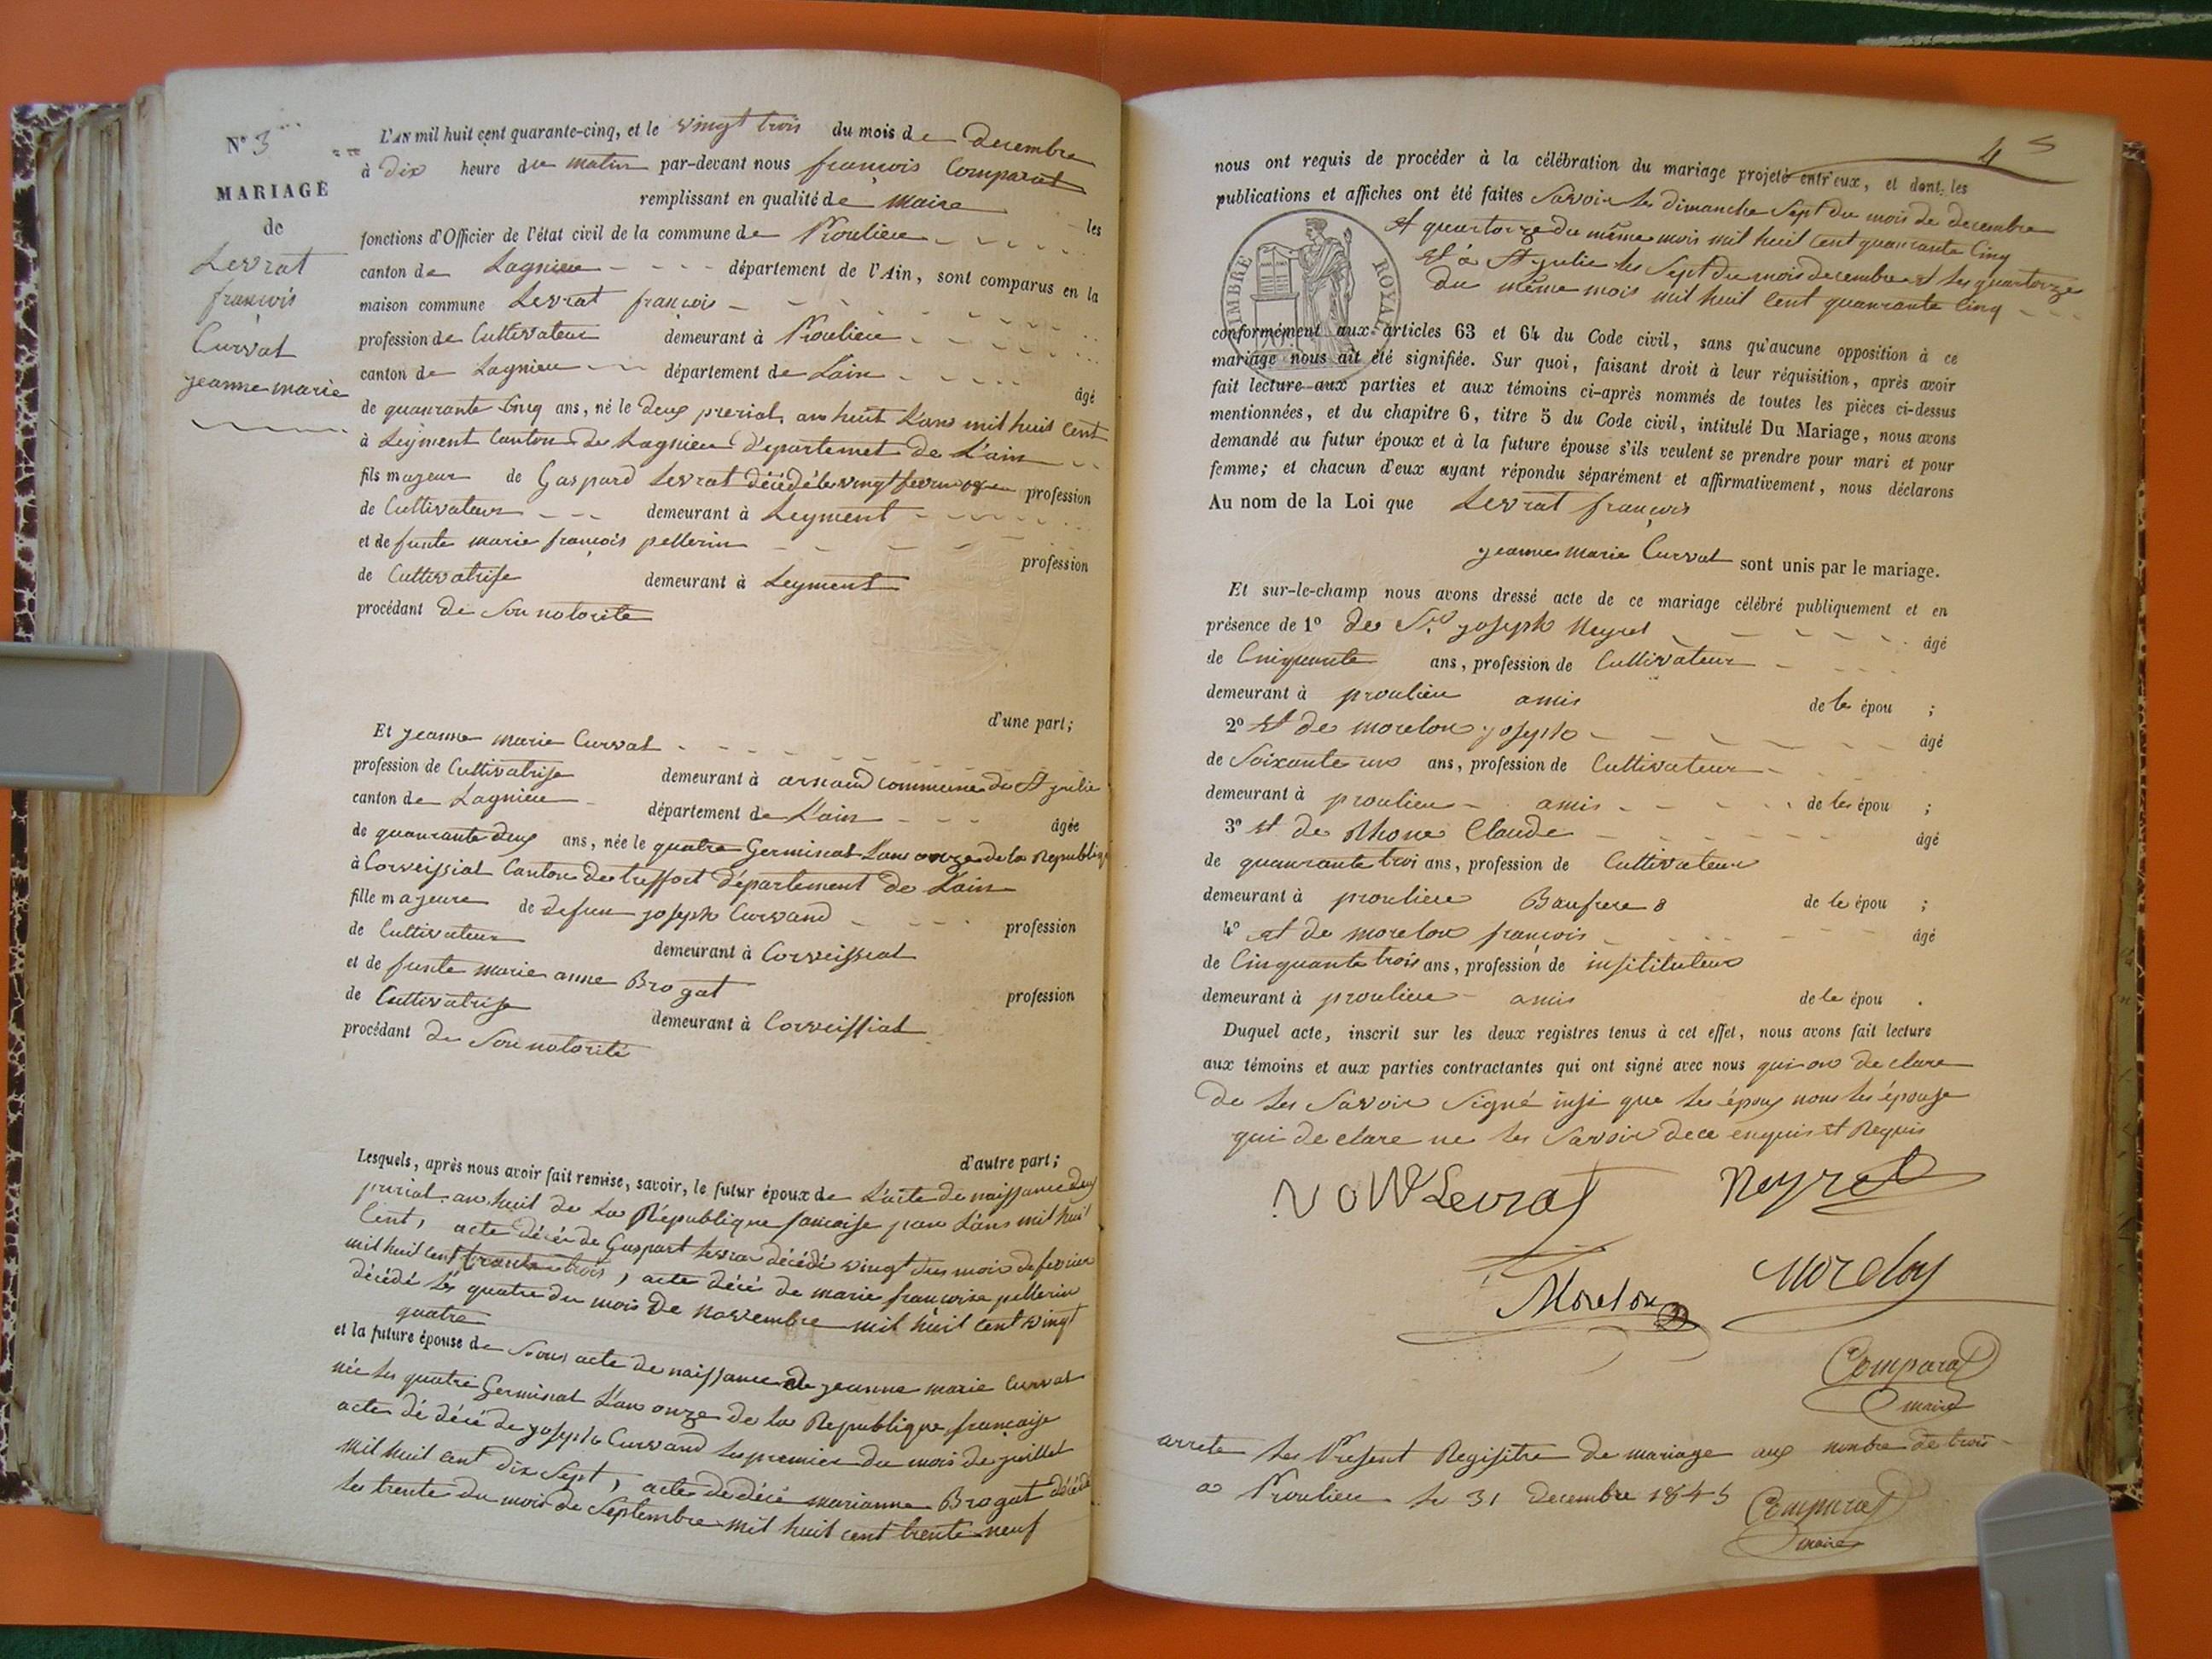 N° 3
MARIAGE
de
Levrat
françois
Curvat
jeanne marie
L'AN mil huit cent quarante-cinq, et le vingt trois du mois de decembre
à dix heure du matin par-devant nous françois Comparat
remplissant en qualité de maire les
fonctions d'Officier de l'état civil de la commune de Proulieu
canton de Lagnieu département de l'Ain, sont comparus en la
maison commune Levrat françois
profession de Cultivateur demeurant à Proulieu
canton de Lagnieu département de Lain
âgé
de quanrante Cinq ans, né le deux prerial an huit Lans mil huit Cent
à Leyment Canton de Lagnieu d'epartemet de L'ain
fils majeur de Gaspard Levrat décédé le vingt profession
de Cultivateur demeurant à Leyment
et de funte marie françois pellerin
profession
de Cultivatrise demeurant à Leyment
procédant de Son notorite
d'une part;
Et jeanne marie Curvat
profession de Cultivatrise demeurant à arnaud commune de St julie
canton de Lagnieu département de L'ain
âgée
de quanrante deux ans, née le quatre Germinal Lans onze de la Republiq
à Corveissiat Canton de treffort département de Lain
fille majeure de defun joseph Curvand profession
de Cultivateur demeurant à Corveissiat
et de funte marie anne Brogat
profession
de Cultivatrise demeurant à Corveissiat
procédant de Son notorité
d'autre part;
Lesquels, après nous avoir fait remise, savoir, le futur époux de L'acte de naissance deux
prerial an huit de la République francaise pan Lans mil huit
Cent, acte décé de Gaspart levra décédé vingt du mois de fevrier
mil huil cent trante trois, acte décé de marie françoise pellerin
décédé les quatre du mois de novembre mil huit cent vingt
quatre
et la future épouse de Sons acte de naissance de jeanne marie Curvat
née les quatre Germinal L'an onze de la Republique française
acte dé décé de joseph Curvand les premier du mois de juillet
mil huit cent dix Sept, acte de décé marianne Brogat décédé
les trente du mois de Septembre mil huit cent trente neuf
4
nous ont requis de procéder à la célébration du mariage projeté entr'eux, et dont les
publications et affiches ont été faites Savoir les dimanche Sept du mois de decembre
et quartorze du même mois mil huit Cent quanrante Cinq
et à St julie les Sept du mois decembre et les quartorze
du même mois mil huit Cent quanrante Cinq
TIMBRE ROYAL
conformément aux articles 63 et 64 du Code civil, sans qu'aucune opposition à ce
mariage nous ait été signifiée. Sur quoi, faisant droit à leur réquisition, après avoir
fait lecture aux parties et aux témoins ci-après nommés de toutes les pièces ci-dessus
mentionnées, et du chapitre 6, titre 5 du Code civil, intitulé Du Mariage, nous avons
demandé au futur époux et à la future épouse s'ils veulent se prendre pour mari et pour
femme; et chacun d'eux ayant répondu séparément et affirmativement, nous déclarons
Au nom de la Loi que Levrat françois
jeanne marie Curvat sont unis par le mariage.
Et sur-le-champ nous avons dressé acte de ce mariage célébré publiquement et en
présence de 1° de Sr joseph Neyret âgé
de Cinquante ans, profession de Cultivateur
demeurant à proulieu amis de le épou ;
2° et de morelon joseph âgé
de Soixante uns ans, profession de Cultivateur
demeurant à proulieu amis de les épou ;
3° et de Rhone Claude âgé
de quanrante troi ans, profession de Cultivateur
demeurant à proulieu Baufrere de le épou ;
4° et de morelon françois âgé
de Cinquante trois ans, profession de insitituteur
demeurant à proulieu amis de le épou .
Duquel acte, inscrit sur les deux registres tenus à cet effet, nous avons fait lecture
aux témoins et aux parties contractantes qui ont signé avec nous qui on declare
de les Savoir Signé insi que les époux nons les épouse
qui declare ne les Savoir de ce enquis et Requis
Levrat Neyret
Morelon morelon
Comparat
maire
arrete les Present Regisitre de mariage aux nonbre de trois
a Proulieu le 31 decembre 1845 Comparat
maire